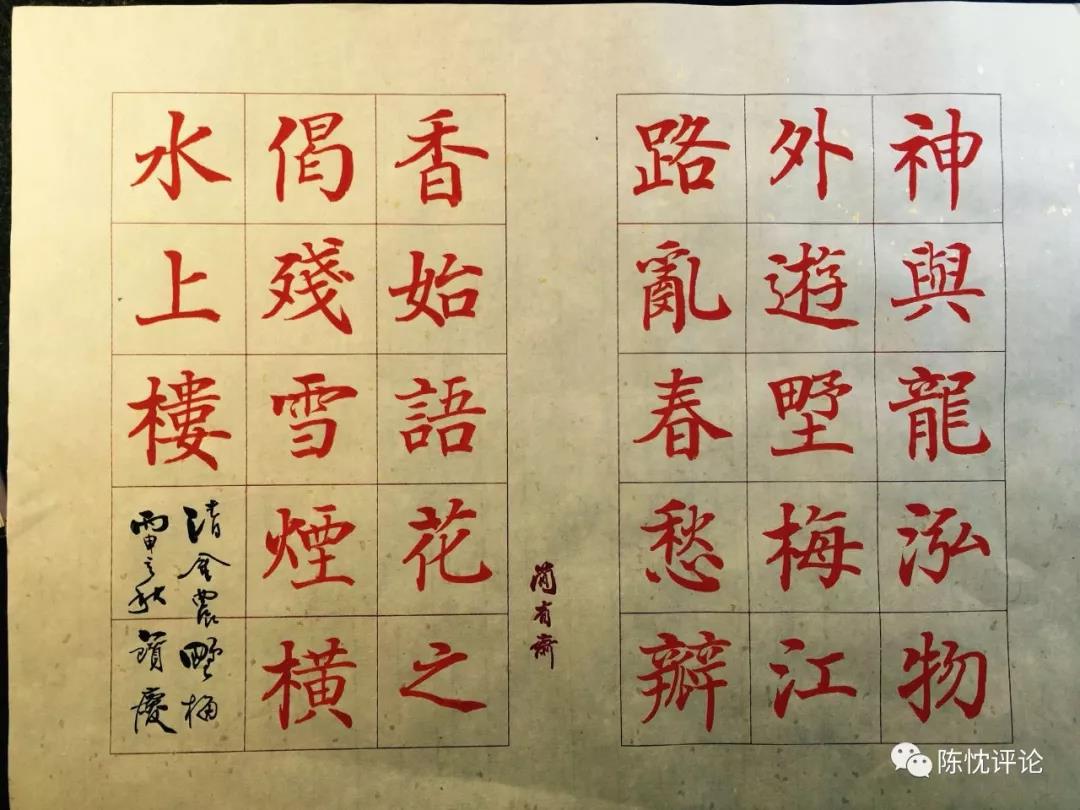 神與龍泓物
外遊墅梅江
路亂春愁辧
簡有齋
香始語花之
偈殘雪煙橫
水上樓
清金農野梅
丙申之秋 寶慶
陈忱评论